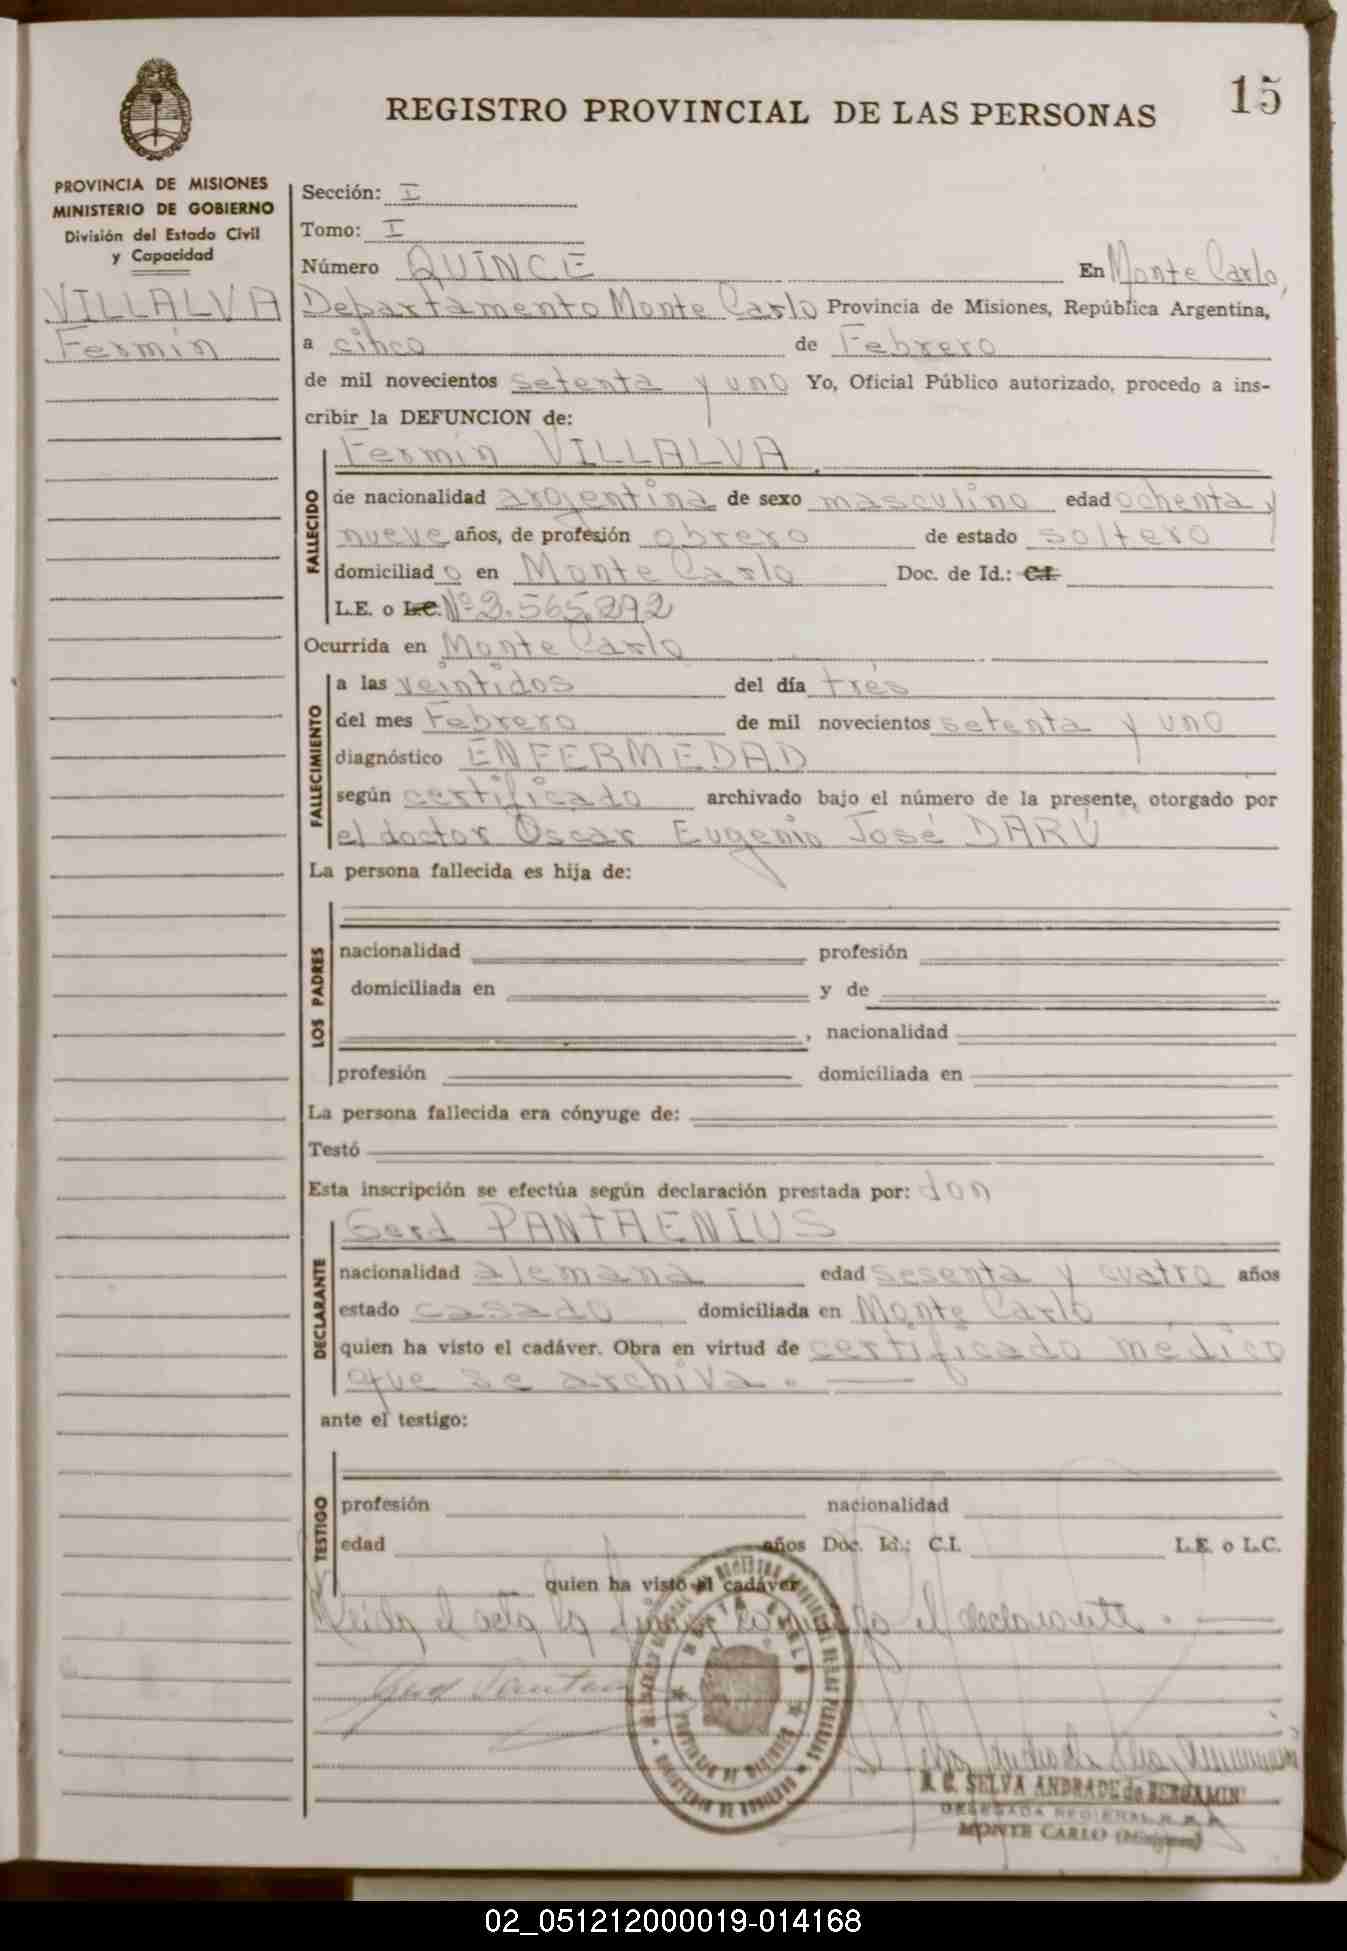 15
REGISTRO PROVINCIAL DE LAS PERSONAS
PROVINCIA DE MISIONES
MINISTERIO DE GOBIERNO
División del Estado Civil
y Capacidad
VILLALVA
Fermín
Sección: I
Tomo: I
Número QUINCE En Monte Carlo,
Departamento Monte Carlo Provincia de Misiones, República Argentina,
a cinco de Febrero
de mil novecientos setenta y uno Yo, Oficial Público autorizado, procedo a ins-
cribir la DEFUNCION de:
Fermín VILLALVA.
FALLECIDO
de nacionalidad argentina de sexo masculino edad ochenta y
nueve años, de profesión obrero de estado soltero
domiciliado en Monte Carlo Doc. de Id.: C.I.
L.E. o L.C. Nº 3.565.292
Ocurrida en Monte Carlo
FALLECIMIENTO
a las veintidos del día trés
del mes Febrero de mil novecientos setenta y uno
diagnóstico ENFERMEDAD
según certificado archivado bajo el número de la presente, otorgado por
el doctor Oscar Eugenio José DARÚ
La persona fallecida es hija de:
LOS PADRES
nacionalidad profesión
domiciliada en y de
, nacionalidad
profesión domiciliada en
La persona fallecida era cónyuge de:
Testó
Esta inscripción se efectúa según declaración prestada por: don
Gerd PANTAENIUS
DECLARANTE
nacionalidad alemana edad sesenta y cuatro años
estado casado domiciliada en Monte Carlo
quien ha visto el cadáver. Obra en virtud de certificado médico
que se archiva.
ante el testigo:
TESTIGO
profesión nacionalidad
edad años Doc. Id.: C.I. L.E. o L.C.
quien ha visto el cadáver
Leída el acta la firma conmigo el declarante.
SELVA ANDRADE de BERGAMINI
DELEGADA
MONTE CARLO (Misiones)
02_051212000019-014168